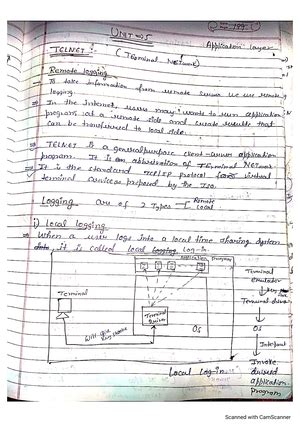 UNIT-5
Application layer
TELNET:- (Terminal NETwork)
Remote logging
⇒ To take information from remote server we use remote
logging.
⇒ In the Internet, users may wants to run application
program at a remote side and create results that
can be transferred to local side.
⇒ TELNET is a general purpose client-server application
program. It is an abbreviation of TErminal NETwork
⇒ It is the standard TCP/IP protocol for virtual
terminal services prepared by the ISO.
Logging are of 2 types
Remote
Local
i) Local logging
⇒ When a user logs into a local time sharing system
it is called local logging Log-in.
Application Programs
Terminal
Terminal
Driver
OS
Local Log-in
Terminal
emulator
Terminal driver
OS
Invoke
desired
application
program
Scanned with CamScanner